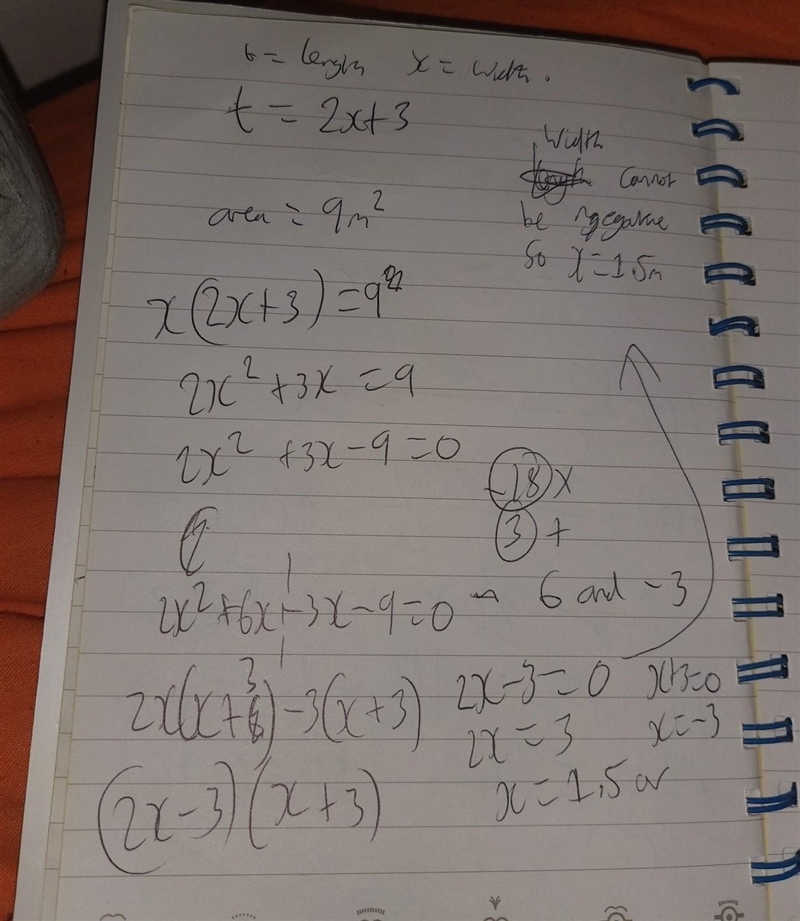 t = length x = width.
t = 2x+3
Width
cannot
be negative
so x=1.5m
area = 9m²
x(2x+3)=9
2x²+3x=9
2x²+3x-9=0
-18 x
3 +
2x²+6x-3x-9=0 6 and -3
2x(x+3)-3(x+3) 2x-3=0 x+3=0
2x=3 x=-3
(2x-3)(x+3) x=1.5 or